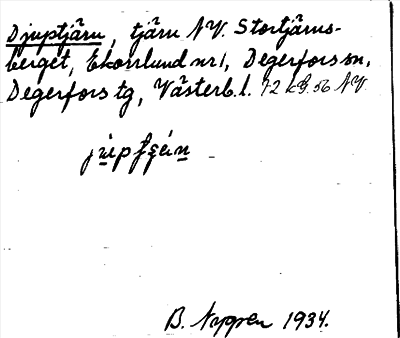 Djuptjärn, tjärn NV. Stortjärns-
berget, Ekorrlund nr 1, Degerfors sn,
Degerfors tg, Västerb. l. 72 kg. 56 NV
B. Nygren 1934.